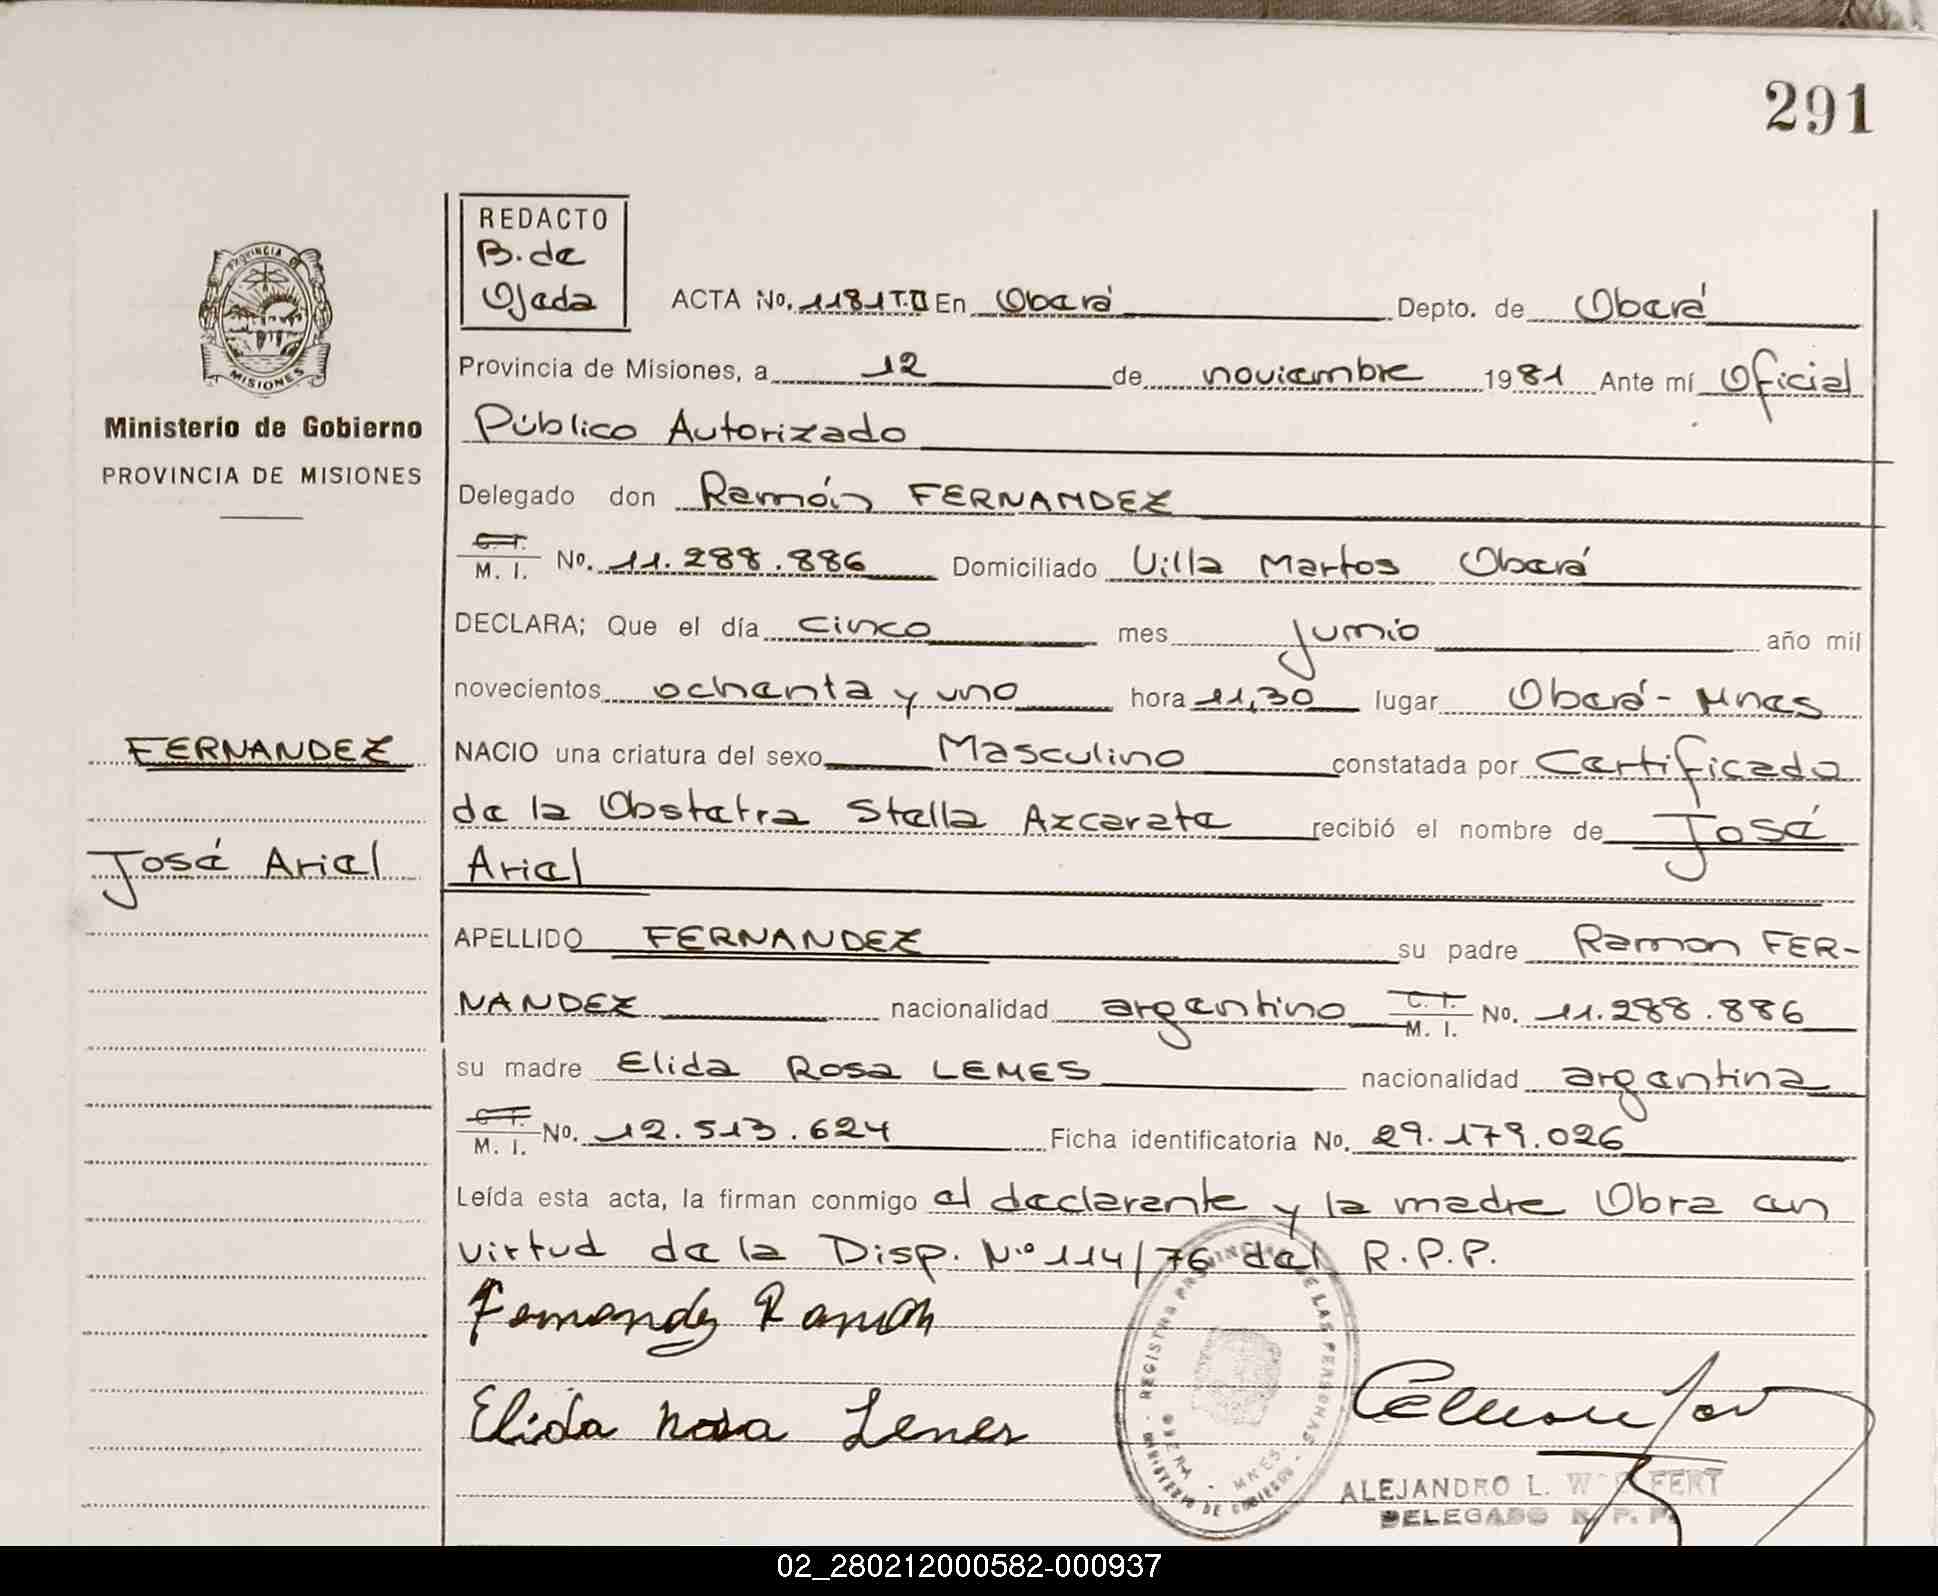 291
REDACTO
B. de
Ojeda
ACTA No. 1181 T.II En Oberá Depto. de Oberá
Provincia de Misiones, a 12 de noviembre 1981 Ante mí Oficial
Público Autorizado
Delegado don Ramón FERNANDEZ
C. I.
M. I. No. 11.288.886 Domiciliado Villa Martos Oberá
DECLARA; Que el día cinco mes junio año mil
novecientos ochenta y uno hora 11,30 lugar Oberá - Mnes
NACIO una criatura del sexo Masculino constatada por Certificado
de la Obstetra Stella Azcarate recibió el nombre de José
Ariel
APELLIDO FERNANDEZ su padre Ramon FER-
NANDEZ nacionalidad argentino C. I.
M. I. No. 11.288.886
su madre Elida Rosa LEMES nacionalidad argentina
C. I.
M. I. No. 12.513.624 Ficha identificatoria No. 29.179.026
Leída esta acta, la firman conmigo el declarante y la madre Obra en
virtud de la Disp. Nº 114/76 del R.P.P.
Fernandez Ramon
Elida Rosa Lemes
PROVINCIA DE
MISIONES
Ministerio de Gobierno
PROVINCIA DE MISIONES
FERNANDEZ
José Ariel
REGISTRO PROVINCIAL DE LAS PERSONAS
MINISTERIO DE GOBIERNO
OBERA - MNES
ALEJANDRO L.
DELEGADO R. P. P.
02_280212000582-000937